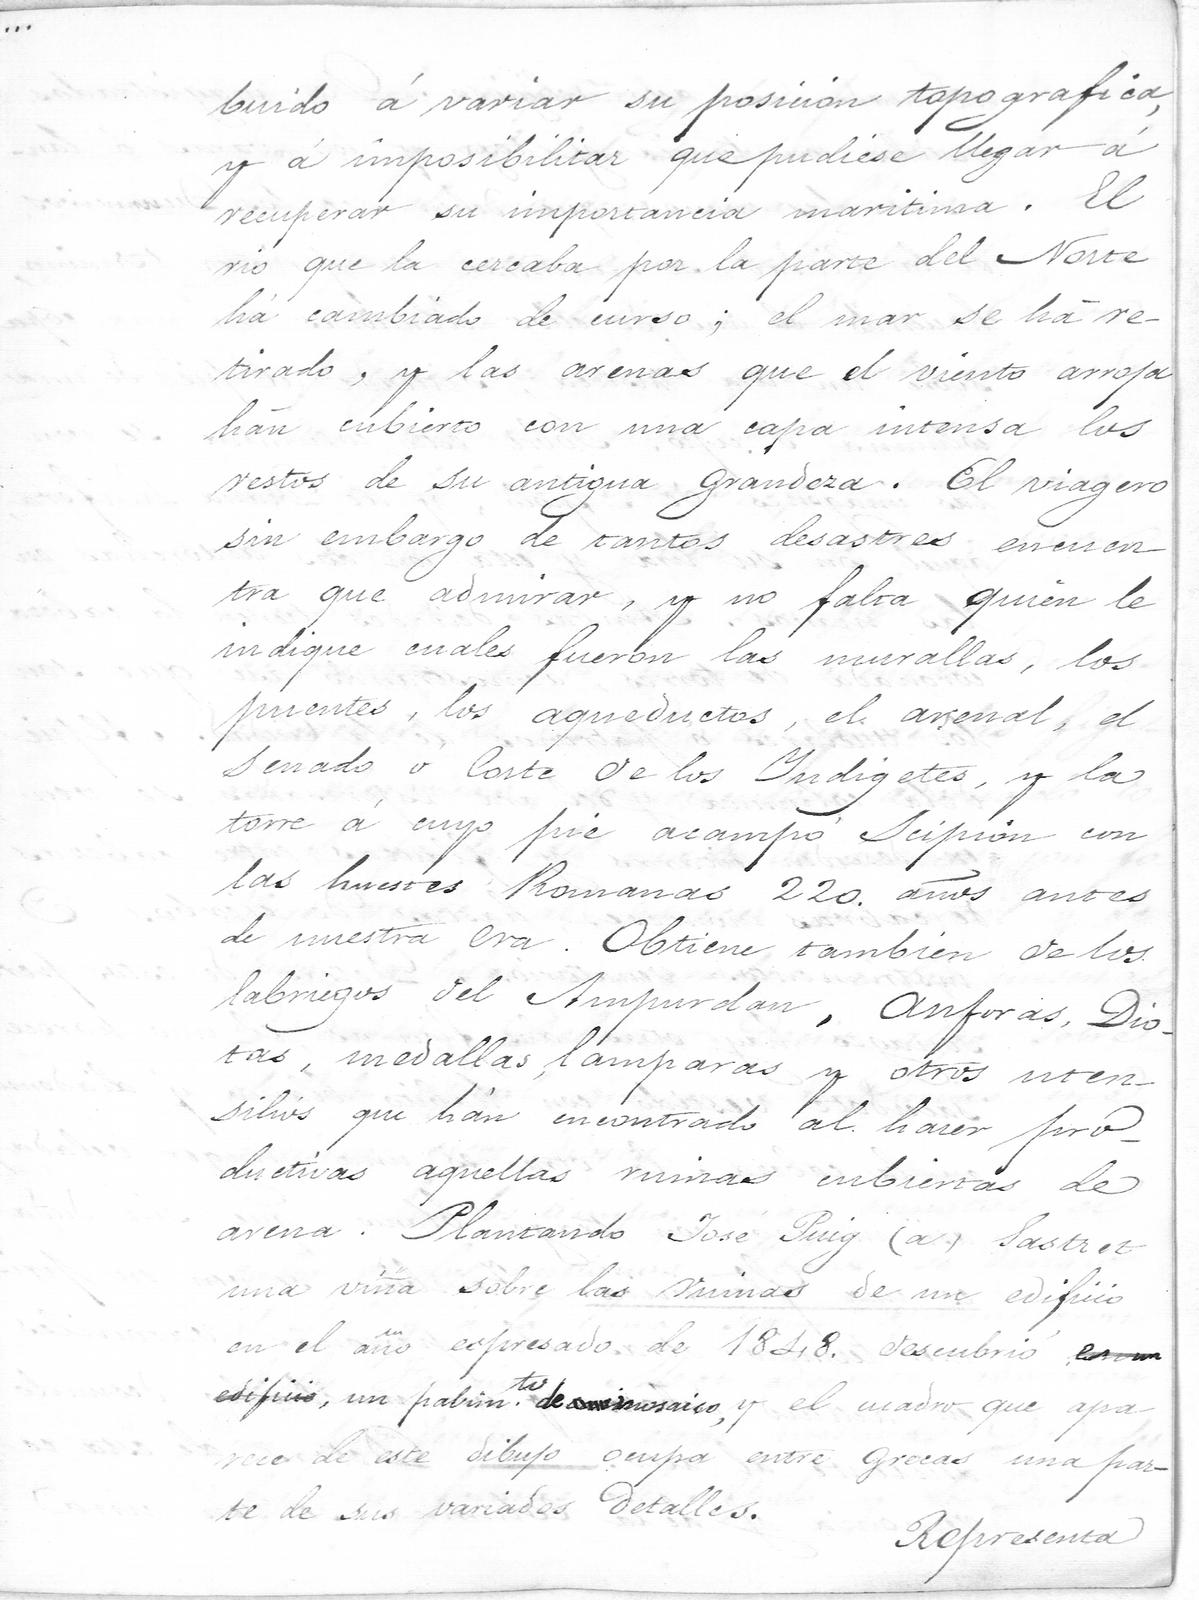 ...
buido á variar su posicion topografica,
y á imposibilitar que pudiese llegar á
recuperar su importancia maritima. El
rio que la cercaba por la parte del Norte
há cambiado de curso; el mar se há re-
tirado, y las arenas que el viento arroja
hán cubierto con una capa intensa los
restos de su antigua grandeza. El viagero
sin embargo de tantos desastres encuen-
tra que admirar, y no falta quien le
indique cuales fueron las murallas, los
puentes, los aqueductos, el arenal, el
Senado o Corte de los Yndigetes, y la
torre á cuyo pie acampó Scipion con
las huestes Romanas 220. años antes
de nuestra era. Obtiene tambien de los
labriegos del Ampurdan, Anforas, Dio-
tas, medallas, lamparas y otros uten-
silios que hán encontrado al hacer pro-
ductivas aquellas ruinas cubiertas de
arena. Plantando José Puig (a) Sastret
una viña sobre las ruinas de un edificio
en el año expresado de 1848. descubrió en un
edificio, un pabimto. de mosaico, y el cuadro que apa-
rece de este dibujo ocupa entre grecas una par-
te de sus variados detalles.
Representa